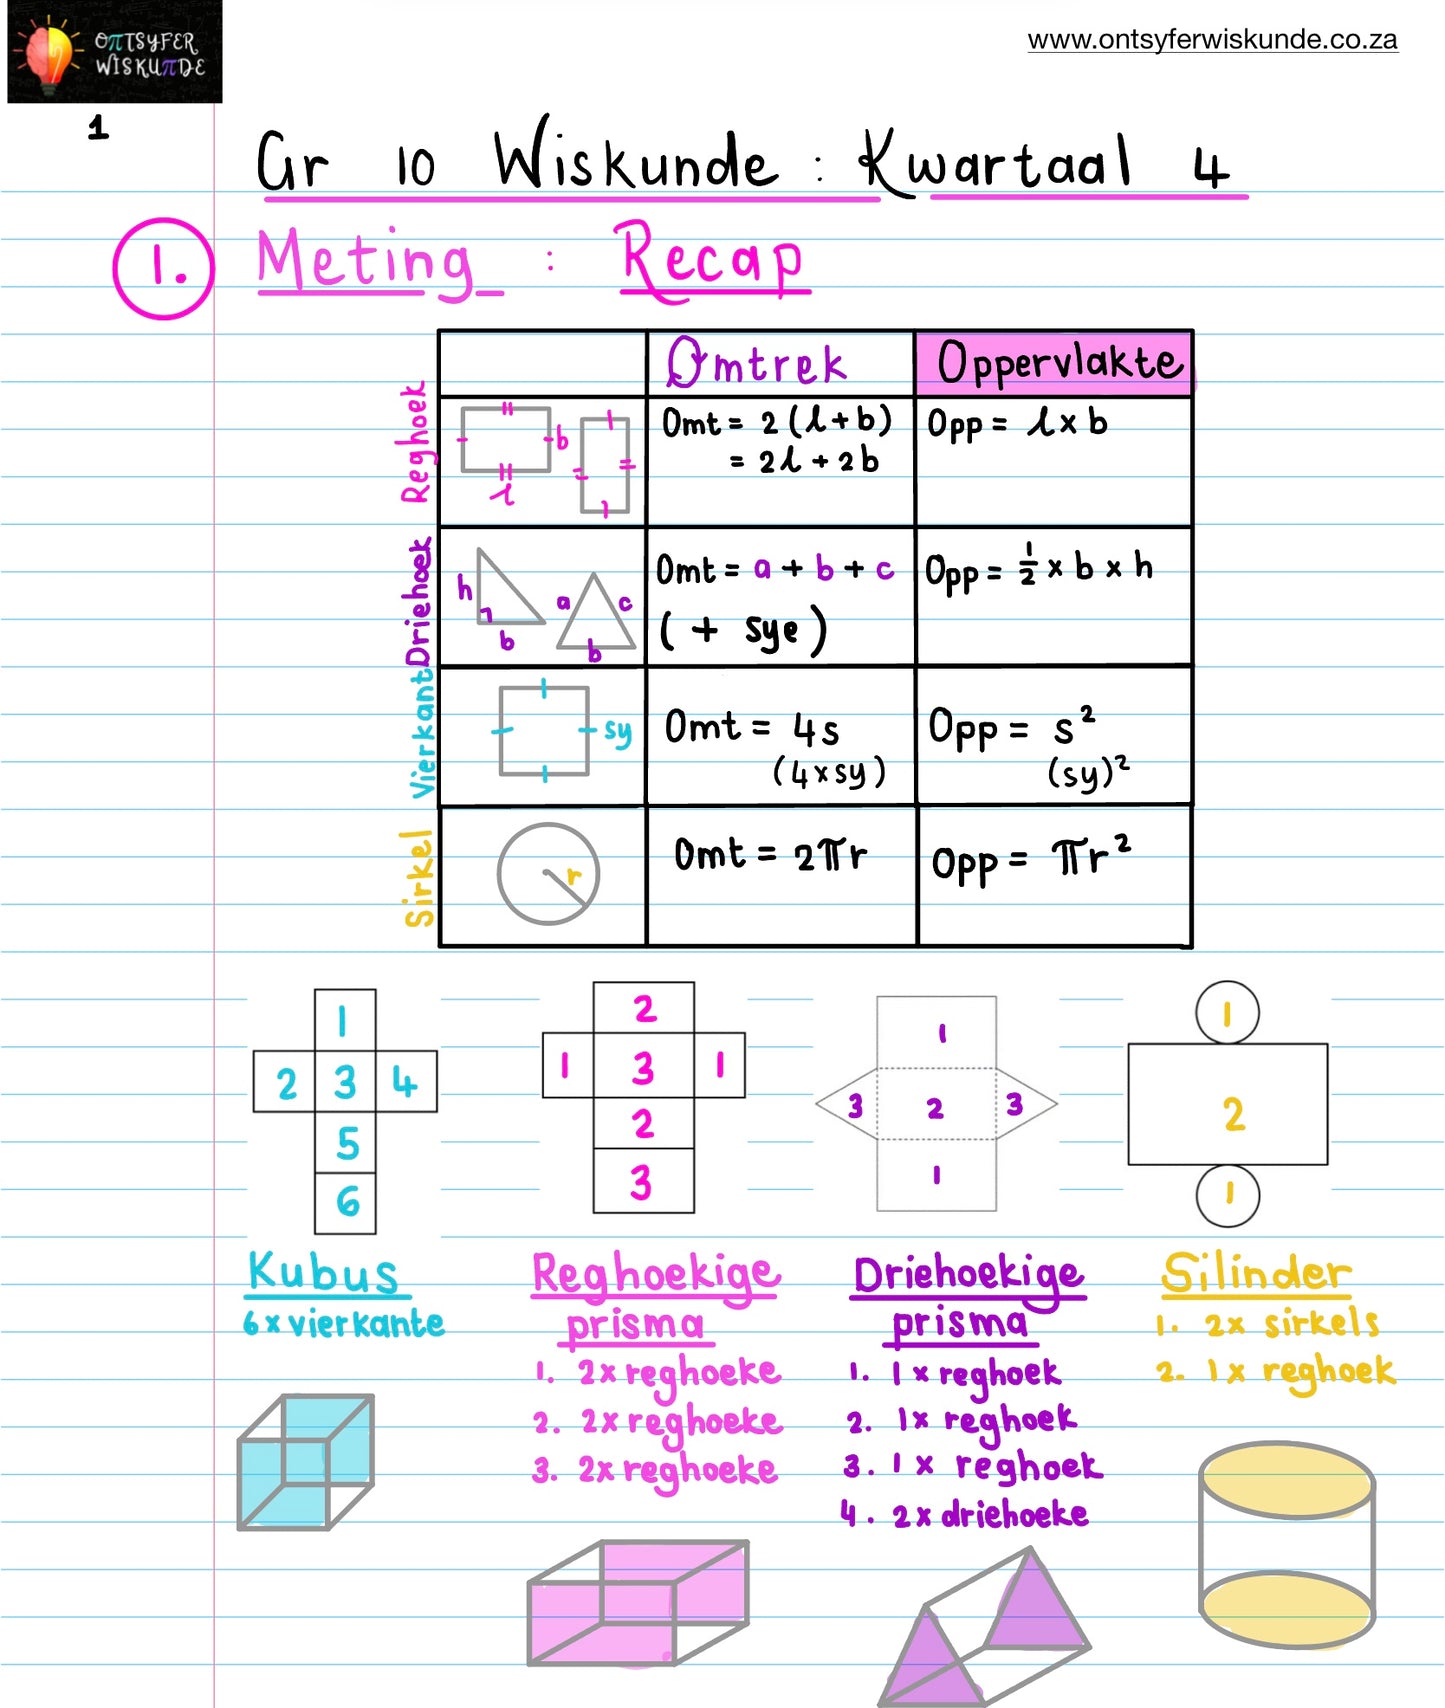 OπTSYFER
WISKUπDE
www.ontsyferwiskunde.co.za
1
Gr 10 Wiskunde : Kwartaal 4
1. Meting : Recap
Omtrek Oppervlakte
Reghoek
b
l
Omt = 2 (l + b)
= 2l + 2b
Opp = l x b
Driehoek
h
b
a
c
b
Omt = a + b + c
(+ sye)
Opp = ½ x b x h
Vierkant
sy
Omt = 4s
(4 x sy)
Opp = s²
(sy)²
Sirkel
r
Omt = 2πr
Opp = πr²
1
2 3 4
5
6
2
1 3 1
2
3
1
3 2 3
1
1
2
1
Kubus
6 x vierkante
Reghoekige
prisma
1. 2x reghoeke
2. 2x reghoeke
3. 2x reghoeke
Driehoekige
prisma
1. 1 x reghoek
2. 1x reghoek
3. 1 x reghoek
4. 2x driehoeke
Silinder
1. 2x sirkels
2. 1x reghoek